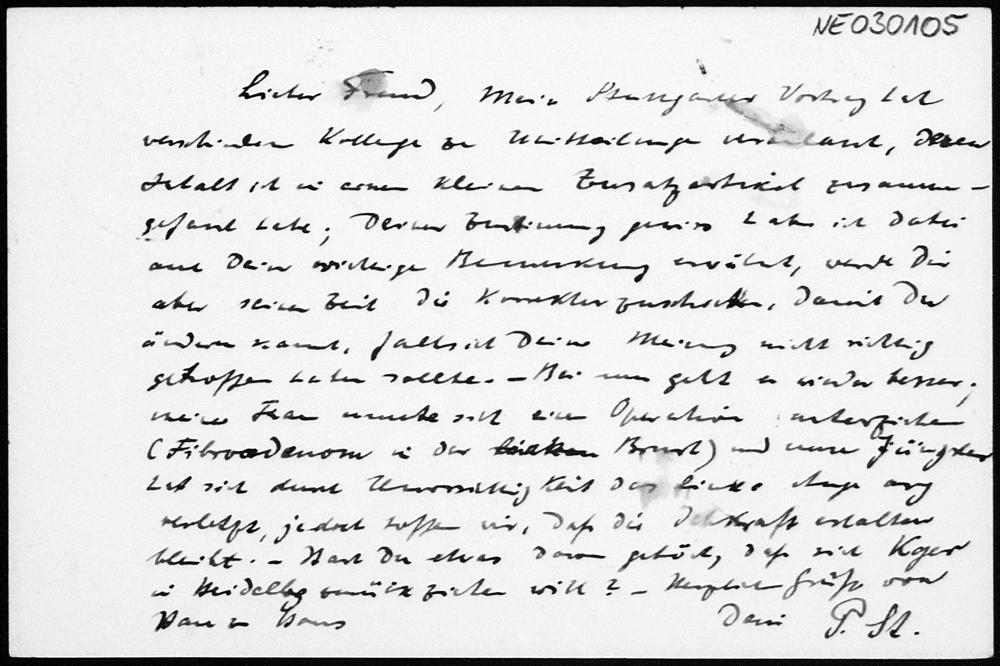 NE030105
Lieber Freund, Mein Stuttgarter Vortrag hat
verschiedene Kollegen zu Mittheilungen veranlasst, deren
Inhalt ich in einem kleinen Zusatzartikel zusammen-
gefasst habe; Deiner Zustimmung gewiss habe ich dabei
auch Deine wichtige Bemerkung erwähnt, werde Dir
aber seiner Zeit die Korrektur zuschicken, damit Du
ändern kannst, falls ich Deine Meinung nicht richtig
getroffen haben sollte. – Bei uns geht es wieder besser;
meine Frau musste sich einer Operation unterziehen
(Fibroadenom in der Brust) und unser Jüngster
hat sich durch Unvorsichtigkeit das linke Auge arg
verletzt, jedoch hoffen wir, daß die Sehkraft erhalten
bleibt. – Hast Du etwas davon gehört, daß sich
in Heidelbg zurückziehen will? – Herzliche Grüße von
Haus zu Haus Dein P. St.